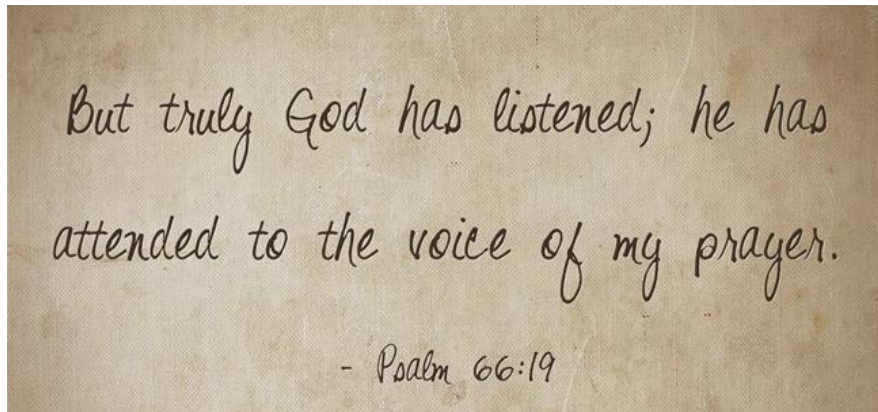 But truly God has listened; he has
attended to the voice of my prayer.
- Psalm 66:19